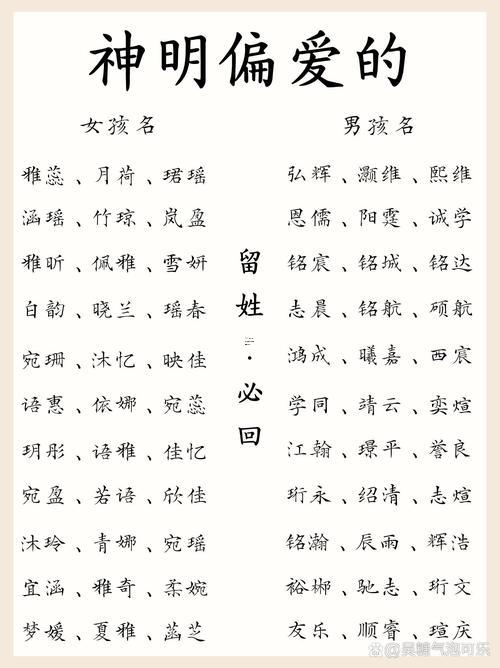 神明偏爱的
女孩名
雅蕊、月荷、珺瑶
涵瑶、竹琼、岚盈
雅昕、佩雅、雪妍
白韵、晓兰、瑶春
宛珊、沐忆、映佳
语惠、依娜、宛蕊
玥彤、语雅、佳忆
宛盈、若语、欣佳
沐玲、青娜、宛瑶
宜涵、雅奇、柔婉
梦媛、夏雅、菡芝
留姓
·必回
男孩名
弘辉、灏维、熙维
恩儒、阳霆、诚学
铭宸、铭城、铭达
志晨、铭航、硕航
鸿成、曦嘉、西宸
学同、靖云、奕煊
江翰、璟平、誉良
珩永、绍清、志煊
铭瀚、辰雨、辉浩
裕郴、驰志、珩文
友乐、顺睿、瑄庆
@吴糖气泡可乐